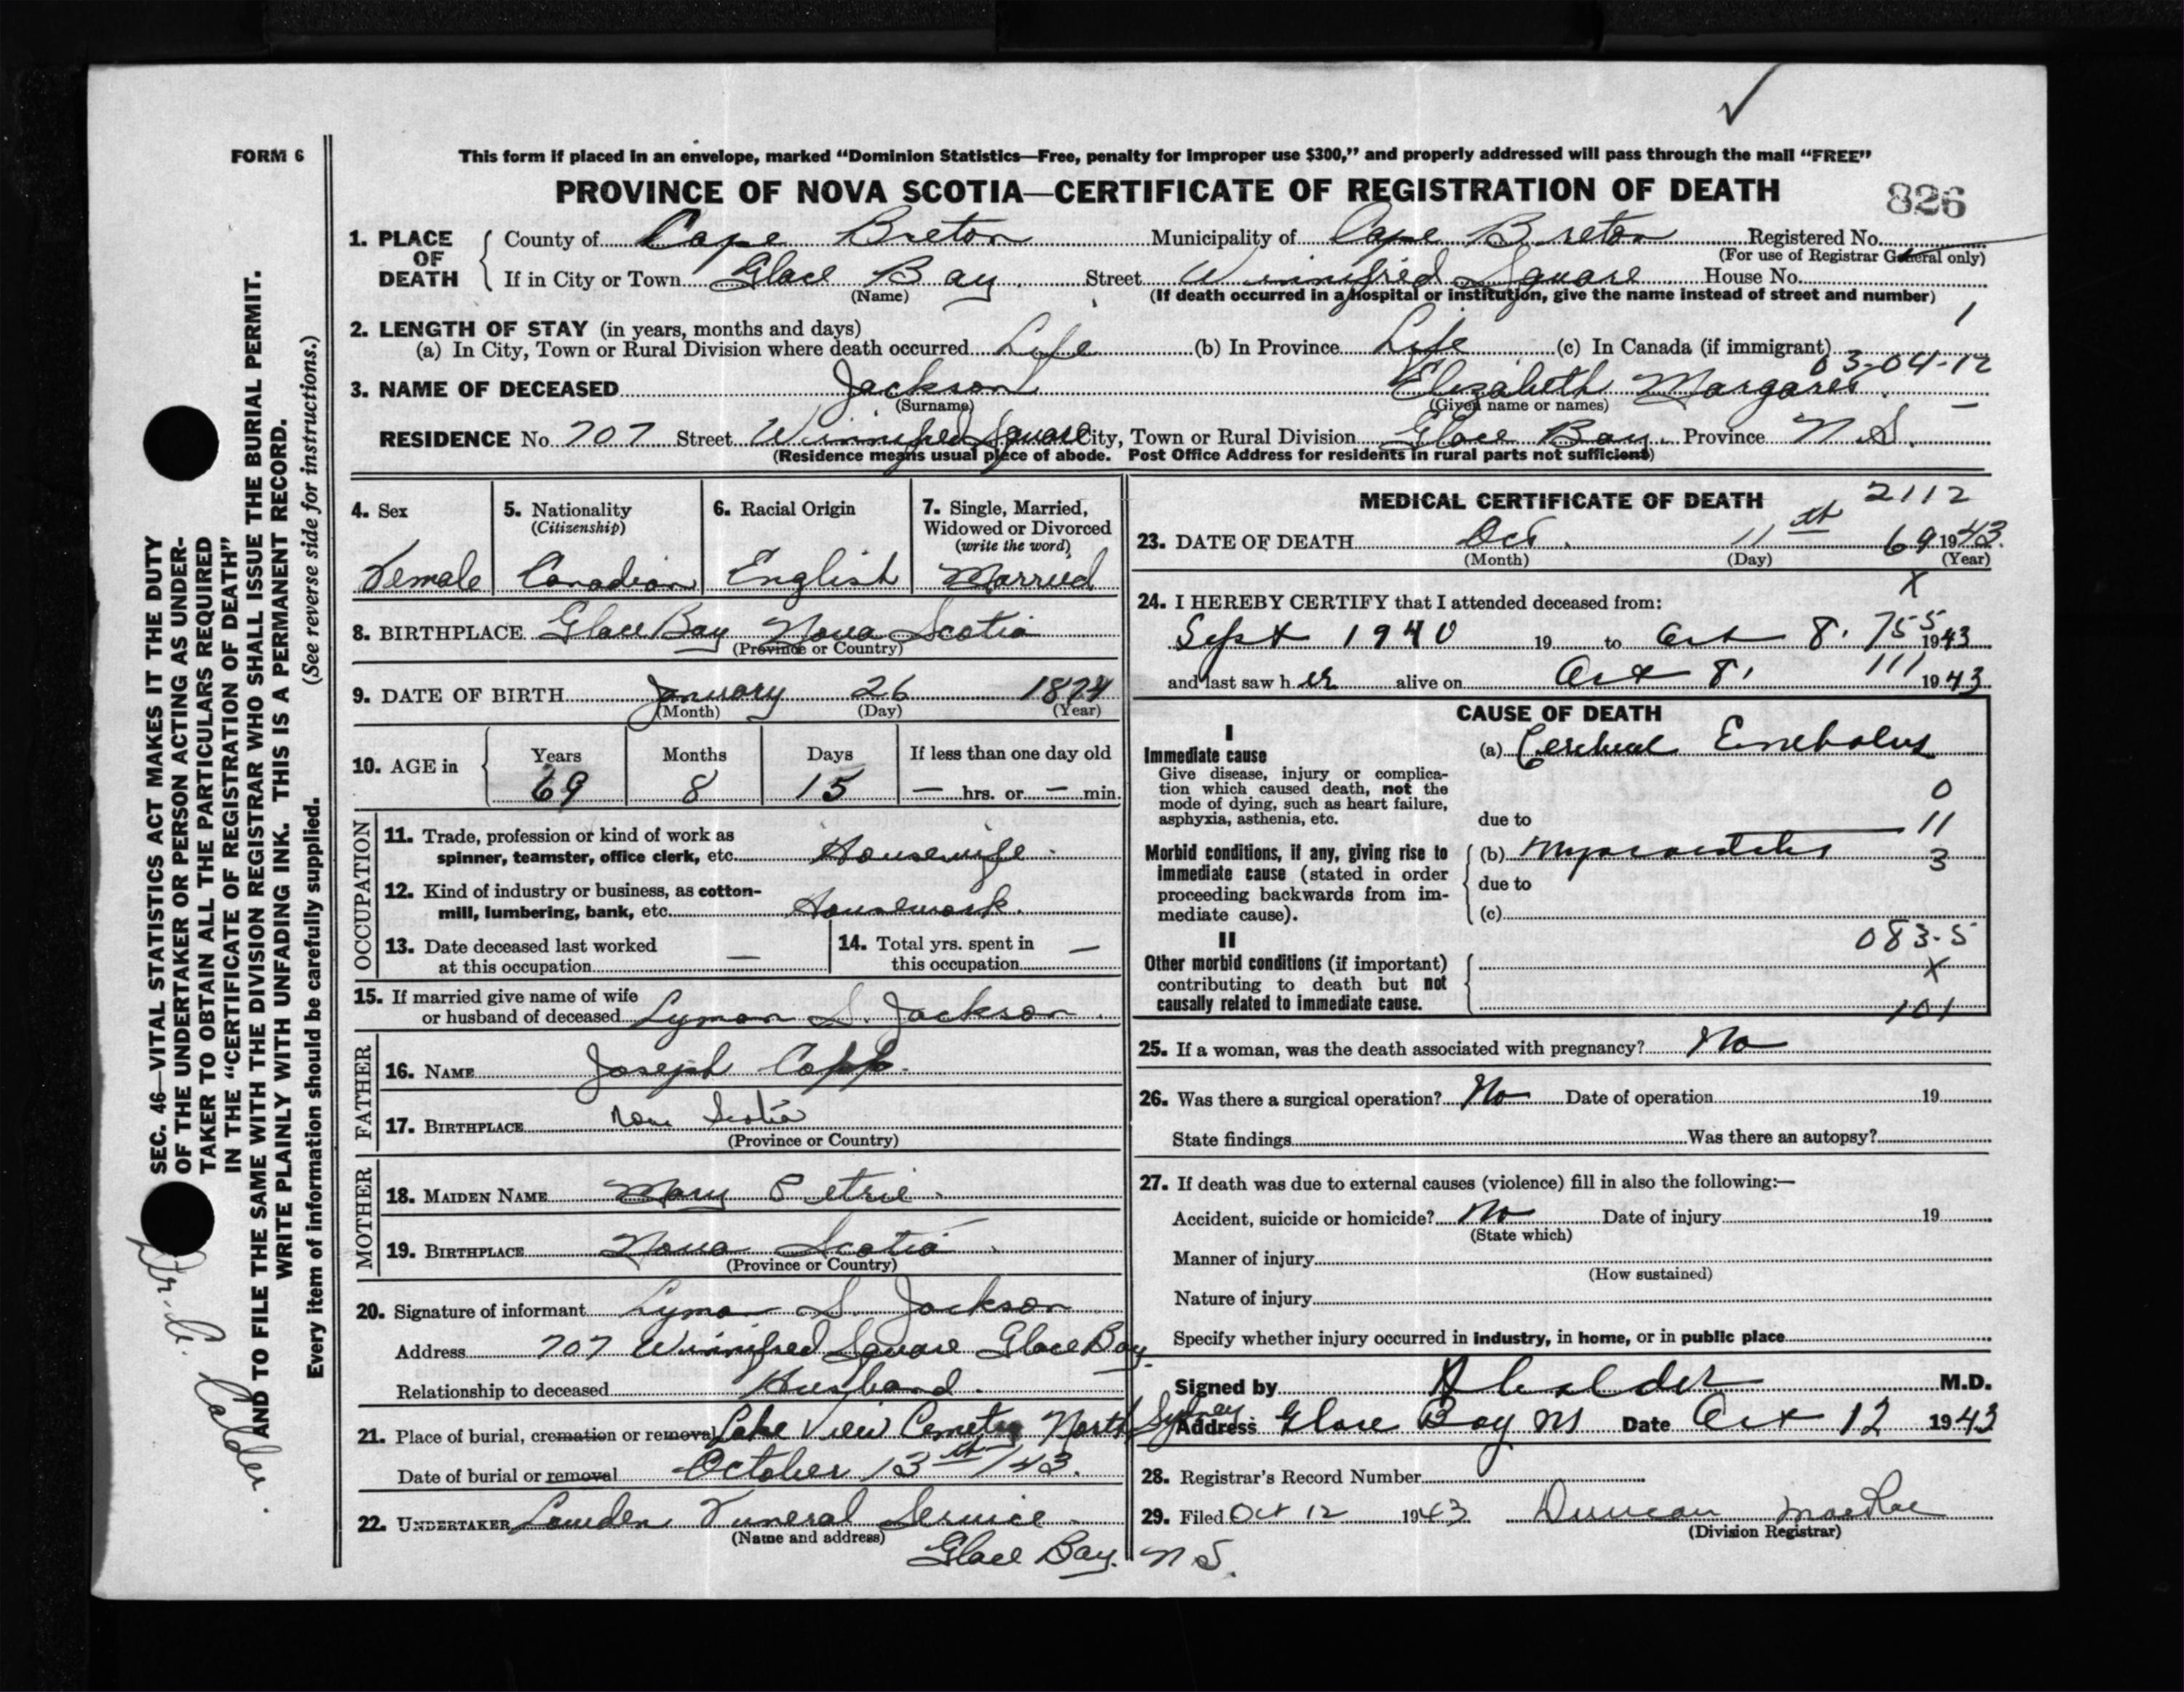 FORM 6
This form if placed in an envelope, marked "Dominion Statistics—Free, penalty for improper use $300," and properly addressed will pass through the mail "FREE"
PROVINCE OF NOVA SCOTIA—CERTIFICATE OF REGISTRATION OF DEATH 826
1. PLACE OF DEATH County of Cape Breton Municipality of Cape Breton Registered No.
(For use of Registrar General only)
If in City or Town Glace Bay Street Winnifred Square House No.
(Name) (If death occurred in a hospital or institution, give the name instead of street and number)
2. LENGTH OF STAY (in years, months and days) 1
(a) In City, Town or Rural Division where death occurred Life (b) In Province Life (c) In Canada (if immigrant)
03-04-12
3. NAME OF DECEASED Jackson Elizabeth Margaret
(Surname) (Given name or names)
RESIDENCE No 707 Street Winnifred Square City, Town or Rural Division Glace Bay. Province N.S.
(Residence means usual place of abode. Post Office Address for residents in rural parts not sufficient)
4. Sex 5. Nationality (Citizenship) 6. Racial Origin 7. Single, Married, Widowed or Divorced (write the word)
Female Canadian English Married
8. BIRTHPLACE Glace Bay Nova Scotia
(Province or Country)
9. DATE OF BIRTH January 26 1874
(Month) (Day) (Year)
10. AGE in Years Months Days If less than one day old
69 8 15 — hrs. or — min.
OCCUPATION
11. Trade, profession or kind of work as
spinner, teamster, office clerk, etc. Housewife
12. Kind of industry or business, as cotton-
mill, lumbering, bank, etc. Housework.
13. Date deceased last worked
at this occupation —
14. Total yrs. spent in
this occupation —
15. If married give name of wife
or husband of deceased Lyman S. Jackson
FATHER
16. NAME Joseph Copp.
17. BIRTHPLACE Nova Scotia
(Province or Country)
MOTHER
18. MAIDEN NAME Mary Petrie
19. BIRTHPLACE Nova Scotia
(Province or Country)
20. Signature of informant Lyman S. Jackson
Address 707 Winnifred Square Glace Bay
Relationship to deceased Husband.
21. Place of burial, cremation or removal Lake View Cemetry North Sydney
Date of burial or removal October 13th /43.
22. UNDERTAKER Lowden Funeral Service
(Name and address)
Glace Bay. N.S.
MEDICAL CERTIFICATE OF DEATH 2112
23. DATE OF DEATH Oct. 11th 69 1943.
(Month) (Day) (Year)
X
24. I HEREBY CERTIFY that I attended deceased from:
Sept 1940 19 to Oct 8. 755 1943
and last saw her alive on Oct 8, 111 1943
CAUSE OF DEATH
I
Immediate cause (a) Cerebral Embolus
Give disease, injury or complica-
tion which caused death, not the
mode of dying, such as heart failure,
asphyxia, asthenia, etc.
0
due to 11
Morbid conditions, if any, giving rise to
immediate cause (stated in order
proceeding backwards from im-
mediate cause).
(b) Myocarditis 3
due to
(c)
II 083-5
Other morbid conditions (if important)
contributing to death but not
causally related to immediate cause.
X
101
25. If a woman, was the death associated with pregnancy? No
26. Was there a surgical operation? No Date of operation 19
State findings Was there an autopsy?
27. If death was due to external causes (violence) fill in also the following:—
Accident, suicide or homicide? No Date of injury 19
(State which)
Manner of injury
(How sustained)
Nature of injury
Specify whether injury occurred in industry, in home, or in public place
Signed by A Calder M.D.
Address Glace Bay NS Date Oct 12 1943
28. Registrar's Record Number
29. Filed Oct 12 1943 Duncan MacRae
(Division Registrar)
SEC. 46—VITAL STATISTICS ACT MAKES IT THE DUTY
OF THE UNDERTAKER OR PERSON ACTING AS UNDER-
TAKER TO OBTAIN ALL THE PARTICULARS REQUIRED
IN THE "CERTIFICATE OF REGISTRATION OF DEATH"
AND TO FILE THE SAME WITH THE DIVISION REGISTRAR WHO SHALL ISSUE THE BURIAL PERMIT.
WRITE PLAINLY WITH UNFADING INK. THIS IS A PERMANENT RECORD.
Every item of information should be carefully supplied. (See reverse side for instructions.)
Calder.